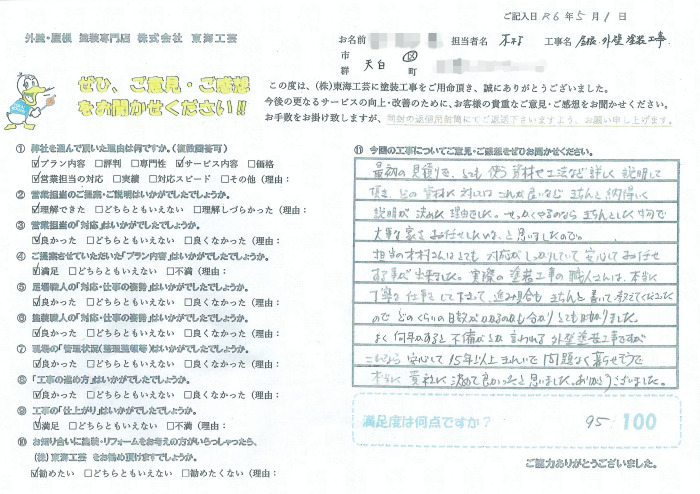 ご記入日 R6年5月1日
外壁・屋根 塗装専門店 株式会社 東海工芸
お名前
担当者名 木村
工事名 屋根・外壁塗装工事
市 郡 天白 区 町
ぜひ、ご意見・ご感想をお聞かせください!!
この度は、(株)東海工芸に塗装工事をご用命頂き、誠にありがとうございました。
今後の更なるサービスの向上・改善のために、お客様の貴重なご意見・ご感想をお聞かせください。
お手数をお掛け致しますが、同封の返信用封筒にてご返送下さいますよう、お願い申し上げます。
① 弊社を選んで頂いた理由は何ですか。(複数回答可)
☑プラン内容 □評判 □専門性 ☑サービス内容 □価格
☑営業担当の対応 □実績 □対応スピード □その他(理由:
② 営業担当のご提案・ご説明はいかがでしたでしょうか。
☑理解できた □どちらともいえない □理解しづらかった(理由:
③ 営業担当の「対応」はいかがでしたでしょうか。
☑良かった □どちらともいえない □良くなかった(理由:
④ ご提案させていただいた「プラン内容」はいかがでしたでしょうか。
☑満足 □どちらともいえない □不満(理由:
⑤ 足場職人の「対応・仕事の姿勢」はいかがでしたでしょうか。
☑良かった □どちらともいえない □良くなかった(理由:
⑥ 塗装職人の「対応・仕事の姿勢」はいかがでしたでしょうか。
☑良かった □どちらともいえない □良くなかった(理由:
⑦ 現場の「管理状況(整理整頓等)」はいかがでしたでしょうか。
☑良かった □どちらともいえない □良くなかった(理由:
⑧ 「工事の進め方」はいかがでしたでしょうか。
☑満足 □どちらともいえない □不満(理由:
⑨ 工事の「仕上がり」はいかがでしたでしょうか。
☑満足 □どちらともいえない □不満(理由:
⑩ お知り合いに塗装・リフォームをお考えの方がいらっしゃったら、
(株)東海工芸 をお勧め頂けますでしょうか。
☑勧めたい □どちらともいえない □勧めたくない(理由:
⑪ 今回の工事についてご意見・ご感想をぜひお聞かせください。
最初の見積りで、とても 使う資材や工法など詳しく説明して
頂き、どの資材に対してはこれが良いなど きちんと納得いく
説明が決めた理由でした。せっかくやるのなら きちんとした物で
大事な家をお任せしたいな、と思いましたので。
担当の木村さんはとても 対応がしっかりしていて安心してお任せ
する事が出来ました。実際の塗装工事の職人さんは、本当に
丁寧な仕事をして下さって、進み具合もきちんと書いて教えてくださった
ので どのくらいの日数がかかるのかも分かりとても助かりました。
よく何年かあると不備がとか言われる外壁塗装工事ですが
これなら安心して15年以上きれいで問題なく暮らせそうで
本当に貴社に決めて良かったと思いました。ありがとうございました。
満足度は何点ですか? 95:100
ご協力ありがとうございました。